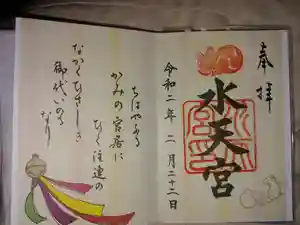 奉拝
水天宮
令和二年二月二十二日
ちはやふる
かみの宮居に
ひく注連の
なかくひさしき
御代いのる
なり